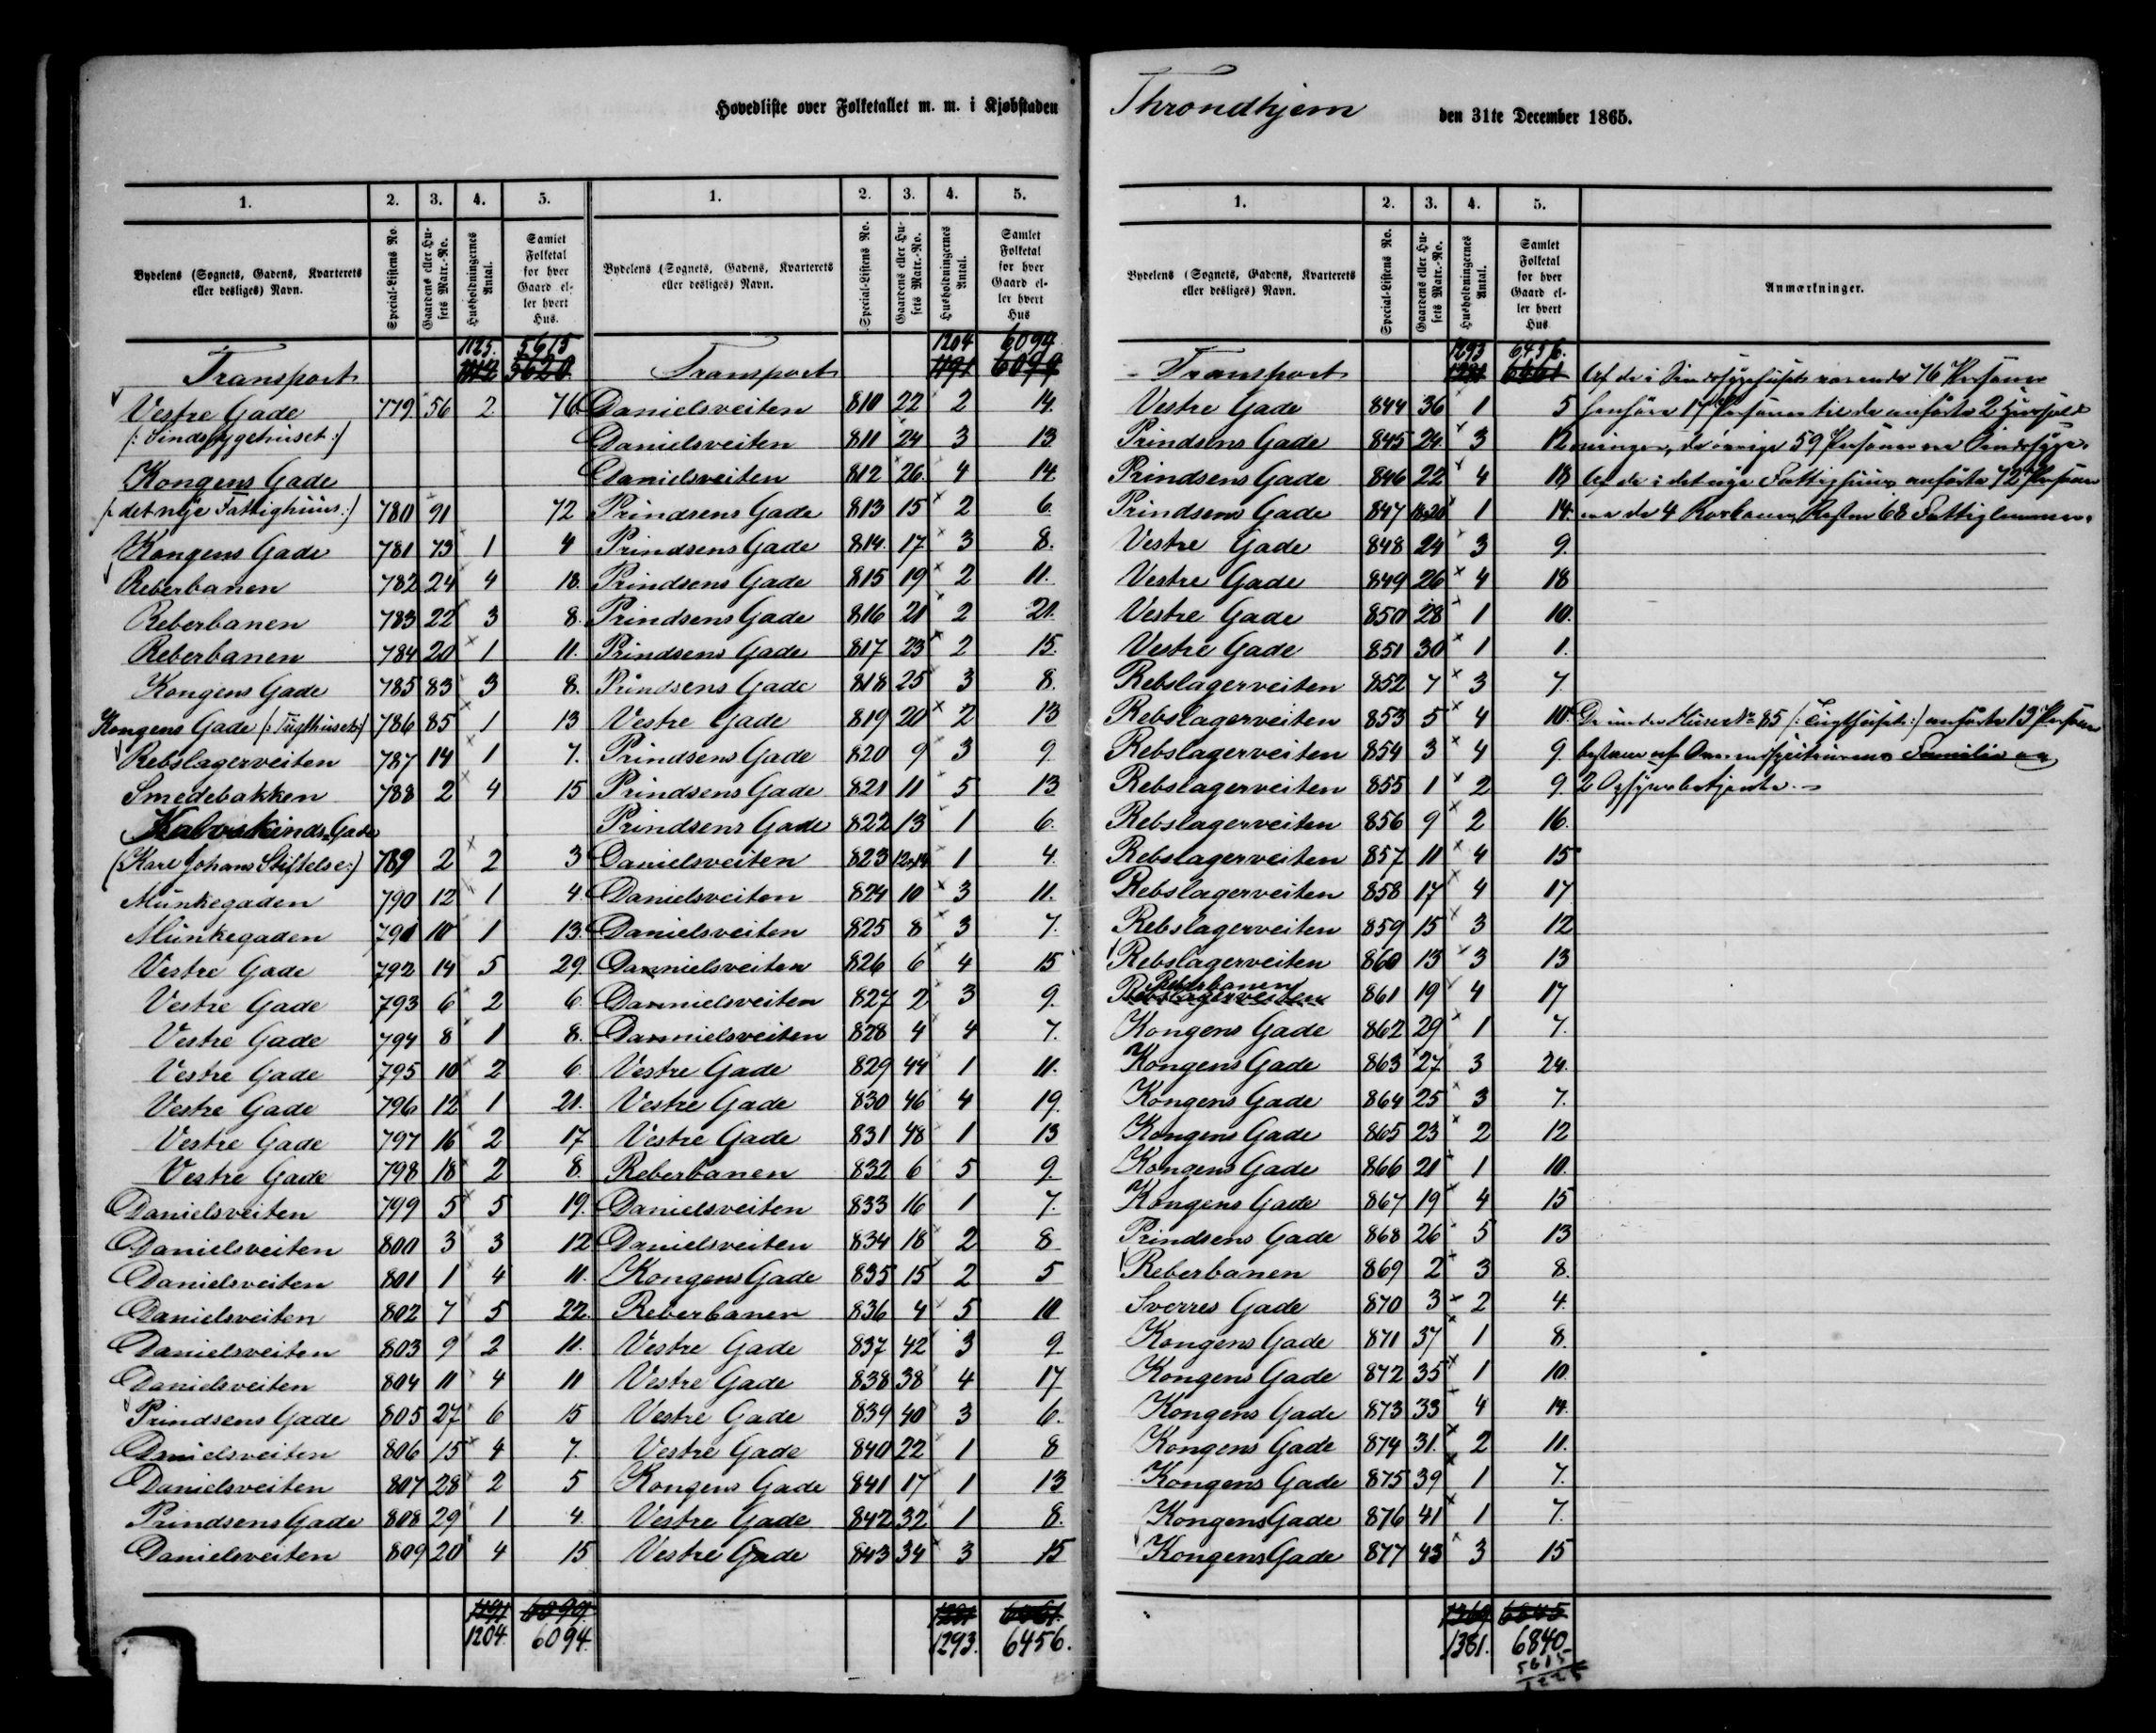 Hovedliste over Folketallet m. m. i Kjøbstaden Throndhjem den 31te December 1865.
1. 2. 3. 4. 5.
Bydelens (Sognets, Gadens, Kvarterets eller desliges) Navn. Special-Listens No. Gaardens eller Husets Matr.-No. Husholdningernes Antal. Samlet Folketal for hver Gaard eller hvert Hus.
1125. 5615
Transport 1112 5620
Vestre Gade 779 56 2 76
(: Sindssygehuset :)
Kongens Gade
(: det nye Fattighuus :) 780 91 72
Kongens Gade 781 73 1 4
Reberbanen 782 24 4 18
Reberbanen 783 22 3 8.
Reberbanen 784 20 1 11.
Kongens Gade 785 83 3 8.
Kongens Gade (: Tugthuset :) 786 85 1 13
Rebslagerveiten 787 14 1 7.
Smedebakken 788 2 4 15
Kalvskinds Gade
(Karl Johans Stiftelse :) 789 2 2 3
Munkegaden 790 12 1 4
Munkegaden 791 10 1 13.
Vestre Gade 792 14 5 29
Vestre Gade 793 6 2 6.
Vestre Gade 794 8 1 8.
Vestre Gade 795 10 2 6.
Vestre Gade 796 12 1 21.
Vestre Gade 797 16 2 17
Vestre Gade 798 18 2 8.
Danielsveiten 799 5 5 19.
Danielsveiten 800 3 3 12
Danielsveiten 801 1 4 11.
Danielsveiten 802 7 5 22.
Danielsveiten 803 9 2 11.
Danielsveiten 804 11 4 11
Prindsens Gade 805 27 6 15
Danielsveiten 806 15 4 7.
Danielsveiten 807 28 2 5
Prindsens Gade 808 29 1 4.
Danielsveiten 809 20 4 15
1191 6099
1204. 6094.
1. 2. 3. 4. 5.
Bydelens (Sognets, Gadens, Kvarterets eller desliges) Navn. Special-Listens No. Gaardens eller Husets Matr.-No. Husholdningernes Antal. Samlet Folketal for hver Gaard eller hvert Hus
1204 6094
Transport 1191 6099
Danielsveiten 810 22 2 14.
Danielsveiten 811 24 3 13
Danielsveiten 812 26 4 14
Prindsens Gade 813 15 2 6.
Prindsens Gade 814. 17 3 8.
Prindsens Gade 815 19 2 11.
Prindsens Gade 816 21 2 21.
Prindsens Gade 817 23 2 15.
Prindsens Gade 818 25 3 8.
Vestre Gade 819 20 2 13
Prindsens Gade 820 9 3 9.
Prindsens Gade 821 11 5 13
Prindsens Gade 822 13 1 6.
Danielsveiten 823 12&14 1 4.
Danielsveiten 824 10 3 11.
Danielsveiten 825 8 3 7.
Dannielsveiten 826 6 4 15
Dannielsveiten 827 2 3 9.
Dannielsveiten 828 4 4 7.
Vestre Gade 829 44 1 11.
Vestre Gade 830 46 4 19.
Vestre Gade 831 48 1 13
Reberbanen 832 6 5 9.
Danielsveiten 833 16 1 7.
Danielsveiten 834 18 2 8
Kongens Gade 835 15 2 5
Reberbanen 836 4 5 10
Vestre Gade 837 42 3 9
Vestre Gade 838 38 4 17
Vestre Gade 839 40 3 6.
Vestre Gade 840 22 1 8
Kongens Gade 841 17 1 13
Vestre Gade 842 32 1 8.
Vestre Gade 843 34 3 15
1281 6461.
1293. 6456.
1. 2. 3. 4. 5.
Bydelens (Sognets, Gadens, Kvarterets eller desliges) Navn. Special-Listens No. Gaardens eller Husets Matr.-No. Husholdningernes Antal. Samlet Folketal for hver Gaard eller hvert Hus Anmærkninger.
1293 6456.
Transport 1281 6461 Af de i Sindssygehuset værende 76 Personer
Vestre Gade 844 36 1 5 henhøre 17 Personer til de anførte 2 Hushold-
Prindsens Gade 845 24 3 12 ninger, de øvrige 59 Personer ere Sindssyge.
Prindsens Gade 846 22 4 18 Af de i det nye Fattighuus anførte 72 Personer
Prindsens Gade 847 18&20 1 14. ere de 4 Resten 68 Fattiglemmer.
Vestre Gade 848 24 3 9.
Vestre Gade 849 26 4 18
Vestre Gade 850 28 1 10.
Vestre Gade 851 30 1 1.
Rebslagerveiten 852 7 3 7.
Rebslagerveiten 853 5 4 10 De under Huset No 85 (: Tugthuset :) anførte 13 Personer
Rebslagerveiten 854 3 4 9. bestaaer af Familie og
Rebslagerveiten 855 1 2 9 2 Opsynsbetjente.
Rebslagerveiten 856 9 2 16.
Rebslagerveiten 857 11 4 15
Rebslagerveiten 858 17 4 17
Rebslagerveiten 859 15 3 12
Rebslagerveiten 860 13 3 13
Reberbanen
Rebslagerveiten 861 19 4 17
Kongens Gade 862 29 1 7.
Kongens Gade 863 27 3 24.
Kongens Gade 864 25 3 7.
Kongens Gade 865 23 2 12
Kongens Gade 866 21 1 10.
Kongens Gade 867 19 4 15
Prindsens Gade 868 26 5 13
Reberbanen 869 2 3 8.
Sverres Gade 870 3 2 4.
Kongens Gade 871 37 1 8.
Kongens Gade 872 35 1 10.
Kongens Gade 873 33 4 14.
Kongens Gade 874 31. 2 11.
Kongens Gade 875 39 1 7.
Kongens Gade 876 41 1 7.
Kongens Gade 877 43 3 15
1369 6845
1381. 6840.
5615
1225